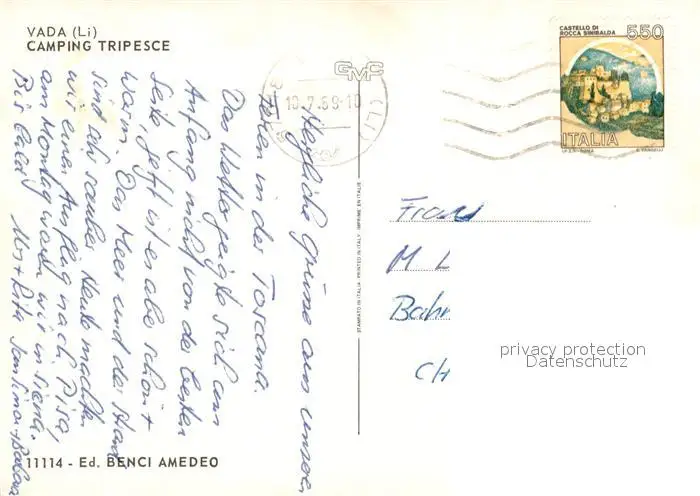 VADA (Li)
CAMPING TRIPESCE
GMC
CASTELLO DI
ROCCA SINIBALDA
550
ITALIA
Herzliche Grüsse aus unseren
Ferien in der Toscana.
Das Wetter zeigte sich am
Anfang nicht von der besten
Seite, jetzt ist es aber schön +
warm. Das Meer und der Strand
sind sauber. Heute machten
wir einen Ausflug nach Pisa,
am Montag waren wir in Siena.
Bis bald Urs + Rita
STAMPATO IN ITALIA - PRINTED IN ITALY - IMPRIME EN ITALIE
Frau
M L
Bahn
CH
privacy protection
Datenschutz
11114 - Ed. BENCI AMEDEO